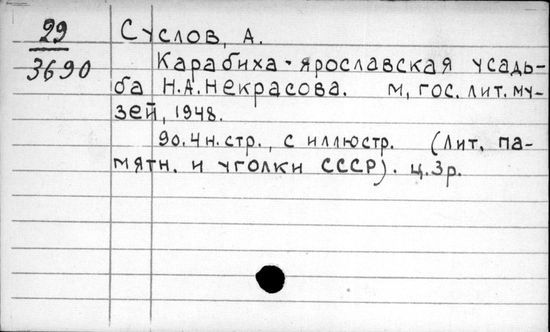 29
3690
Суслов, А.
Карабиха - ярославская усадь-
ба Н.А. Некрасова. М, гос. лит. му-
зей, 1948.
90.4н. стр., с иллюстр. (Лит. па-
мятн. и уголки СССР). ц. 3р.